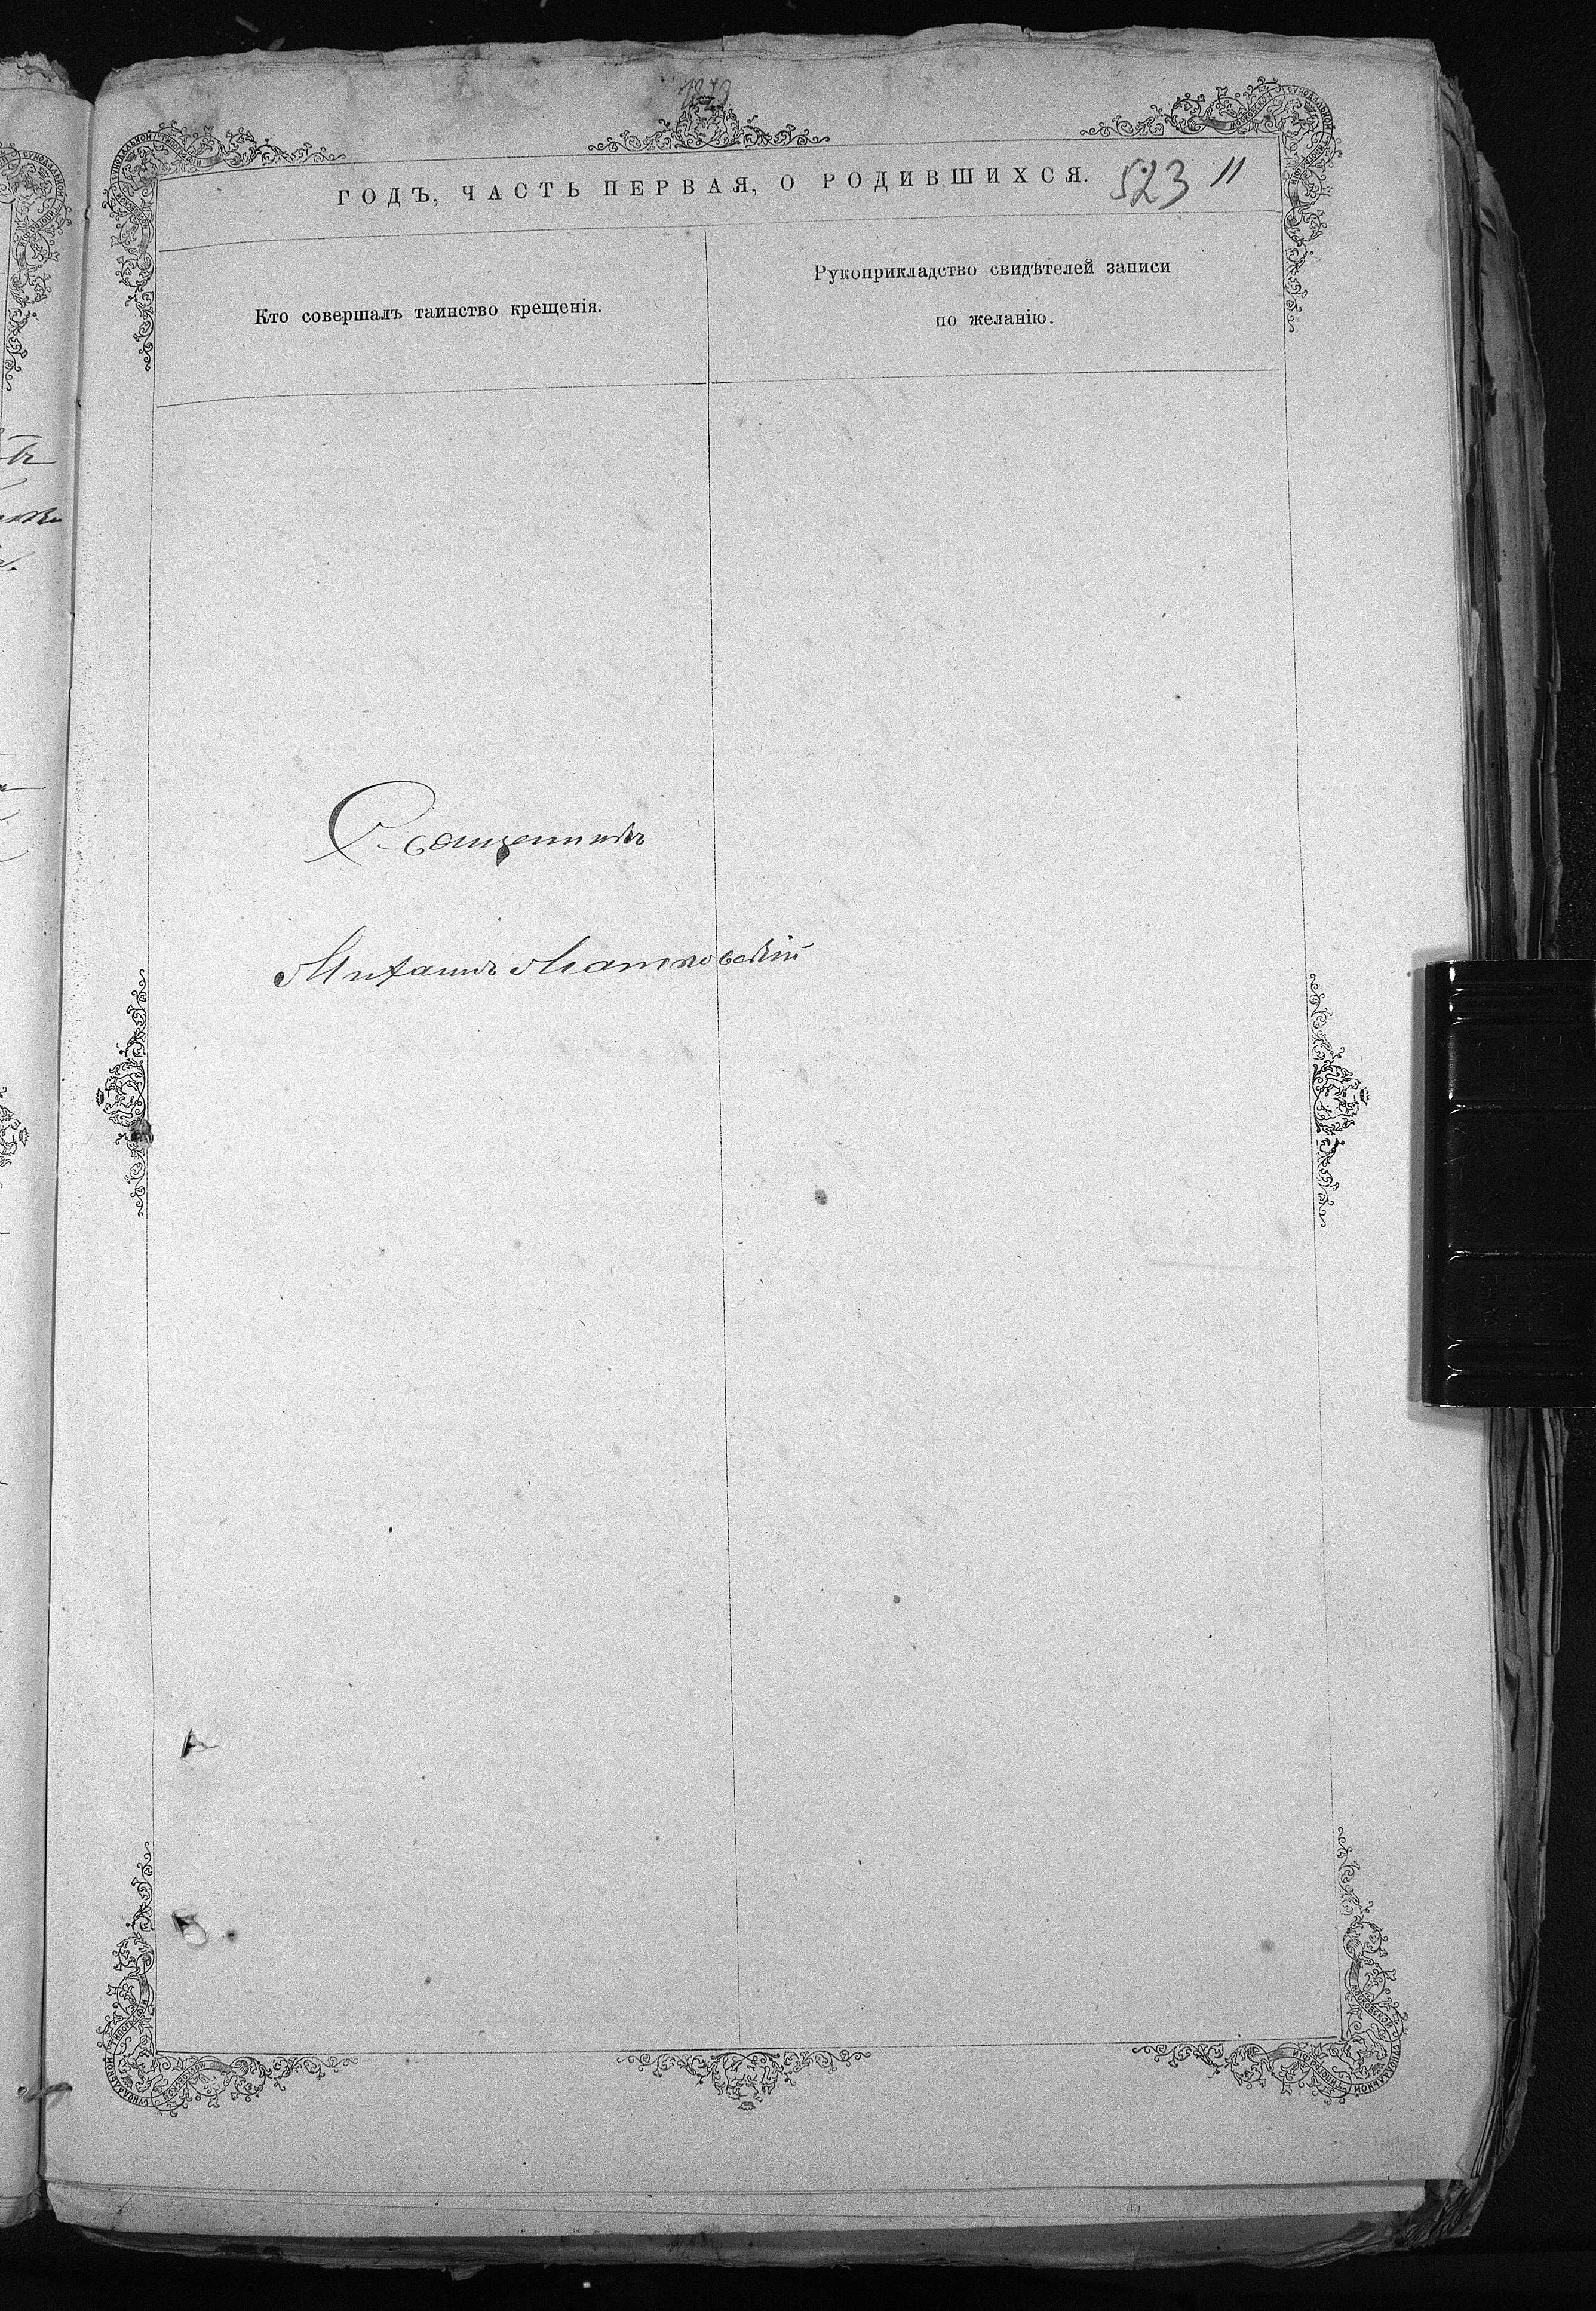 ГОДЪ, ЧАСТЬ ПЕРВАЯ, О РОДИВШИХСЯ. 523 11
Кто совершалъ таинство крещенія.
Рукоприкладство свидѣтелей записи
по желанію.
Священникъ
Михаилъ Матковскій